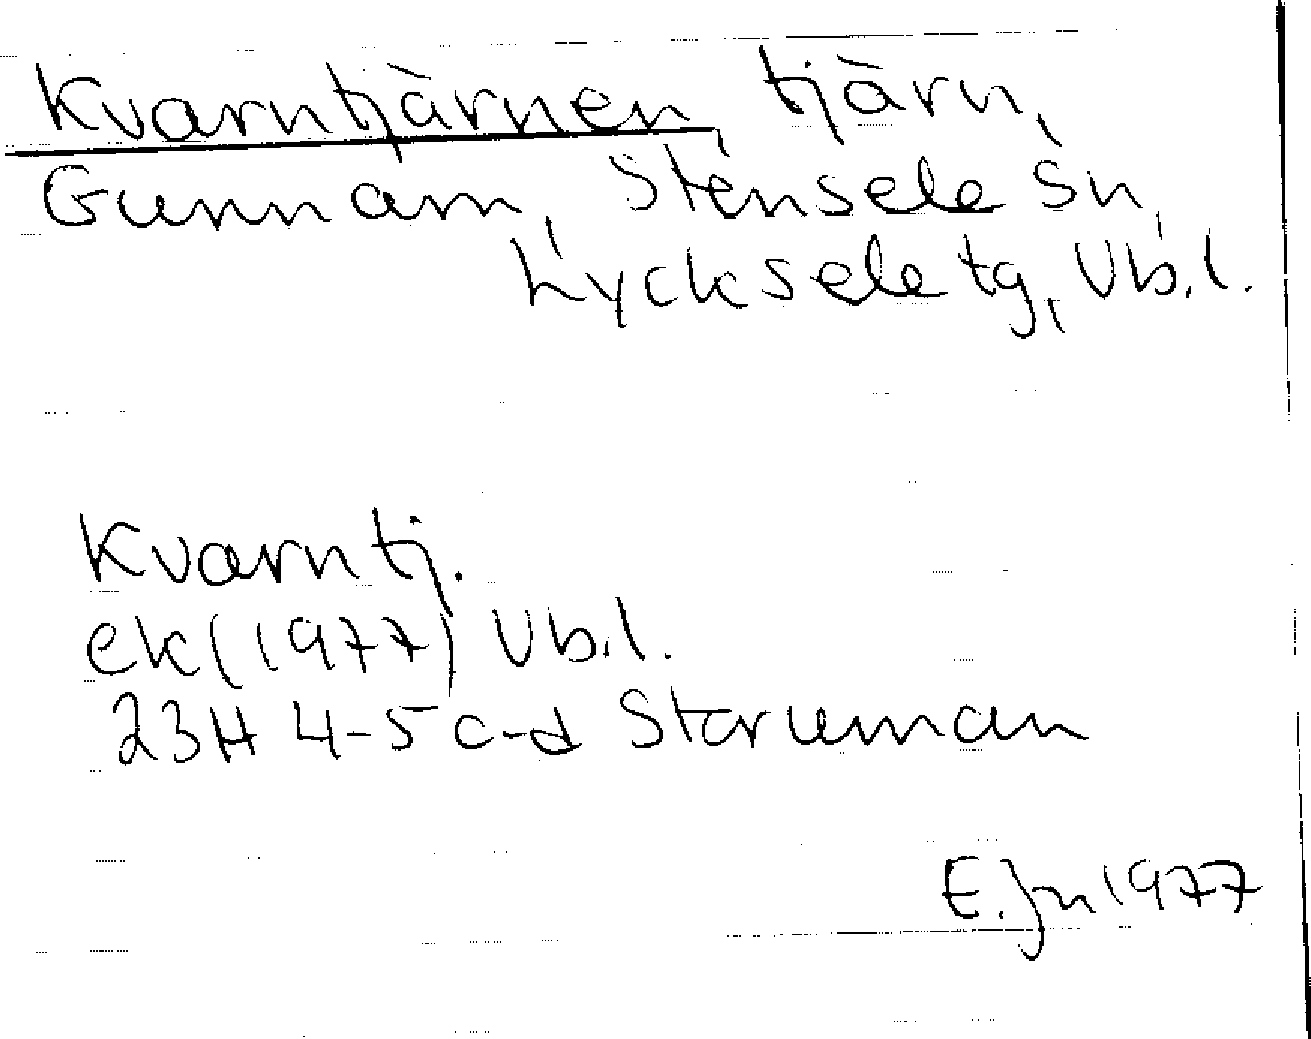 Kvarntjärnen, tjärn,
Gunnarn, Stensele sn,
Lycksele tg, Vb.l.
Kvarntj.
ek (1977) Vb.l.
23H 4-5 c-d Storuman
E. Jn 1977